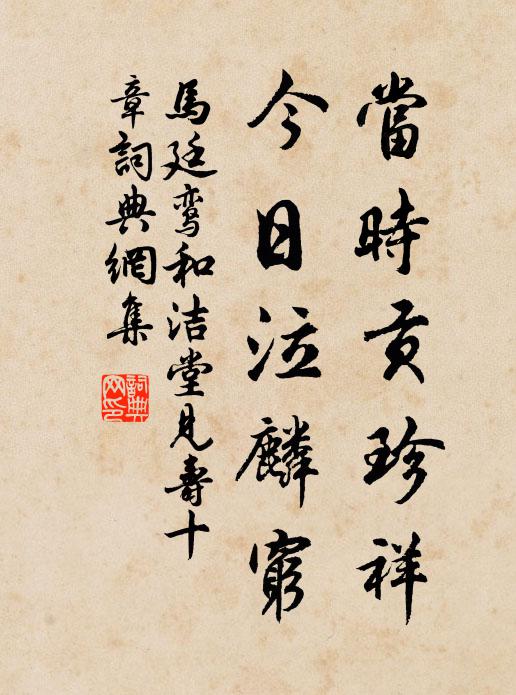 當時貢珍祥
今日泣麟窮
馬廷鸾和洁堂見壽十
章詞典網集
詞典
网印